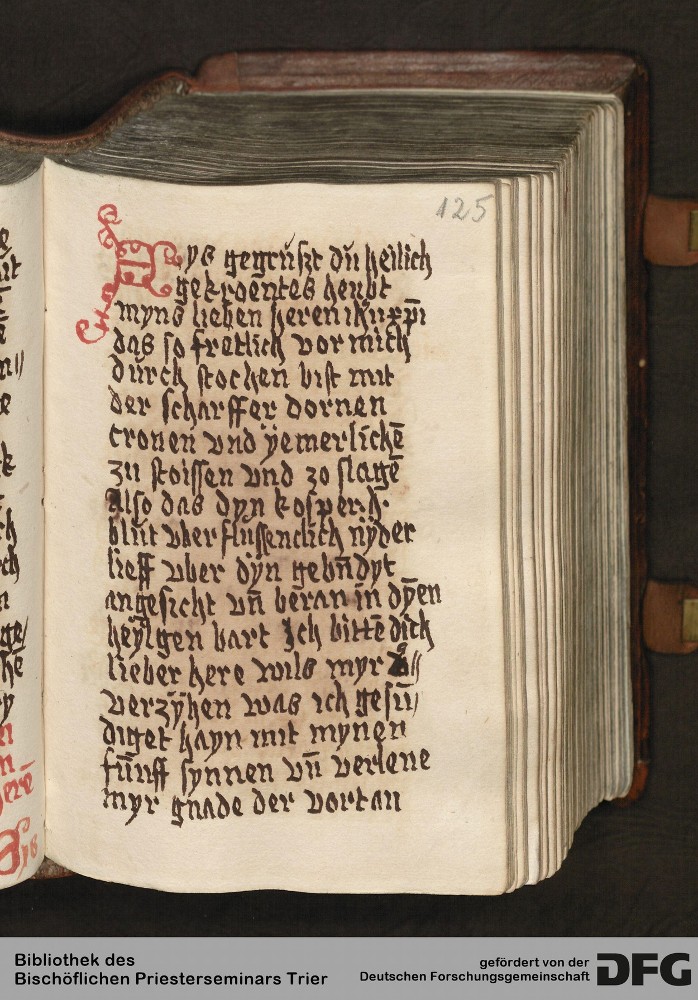 125
Bys gegrůszt dů heilich
gekroentes heubt
myns lieben heren ihu xp̄i
das so fretlich vor mich
důrch stochen bist mit
der scharffer dornen
cronen vnd yemerlichē
zu stoissen vnd zo slagē
Also das dyn kosperch
blůt vber flůssenclich nÿder
lieff vber dÿn gebn̄dyt
angesicht vn̄ beran in dȳen
heÿlgen bart Ich bittē dich
lieber here wils myr
verzÿhen was ich gesū//
diget hayn mit mynen
fūnff synnen vn̄ verlene
myr gnade der vortan
Bibliothek des
Bischöflichen Priesterseminars Trier
gefördert von der
Deutschen Forschungsgemeinschaft
DFG